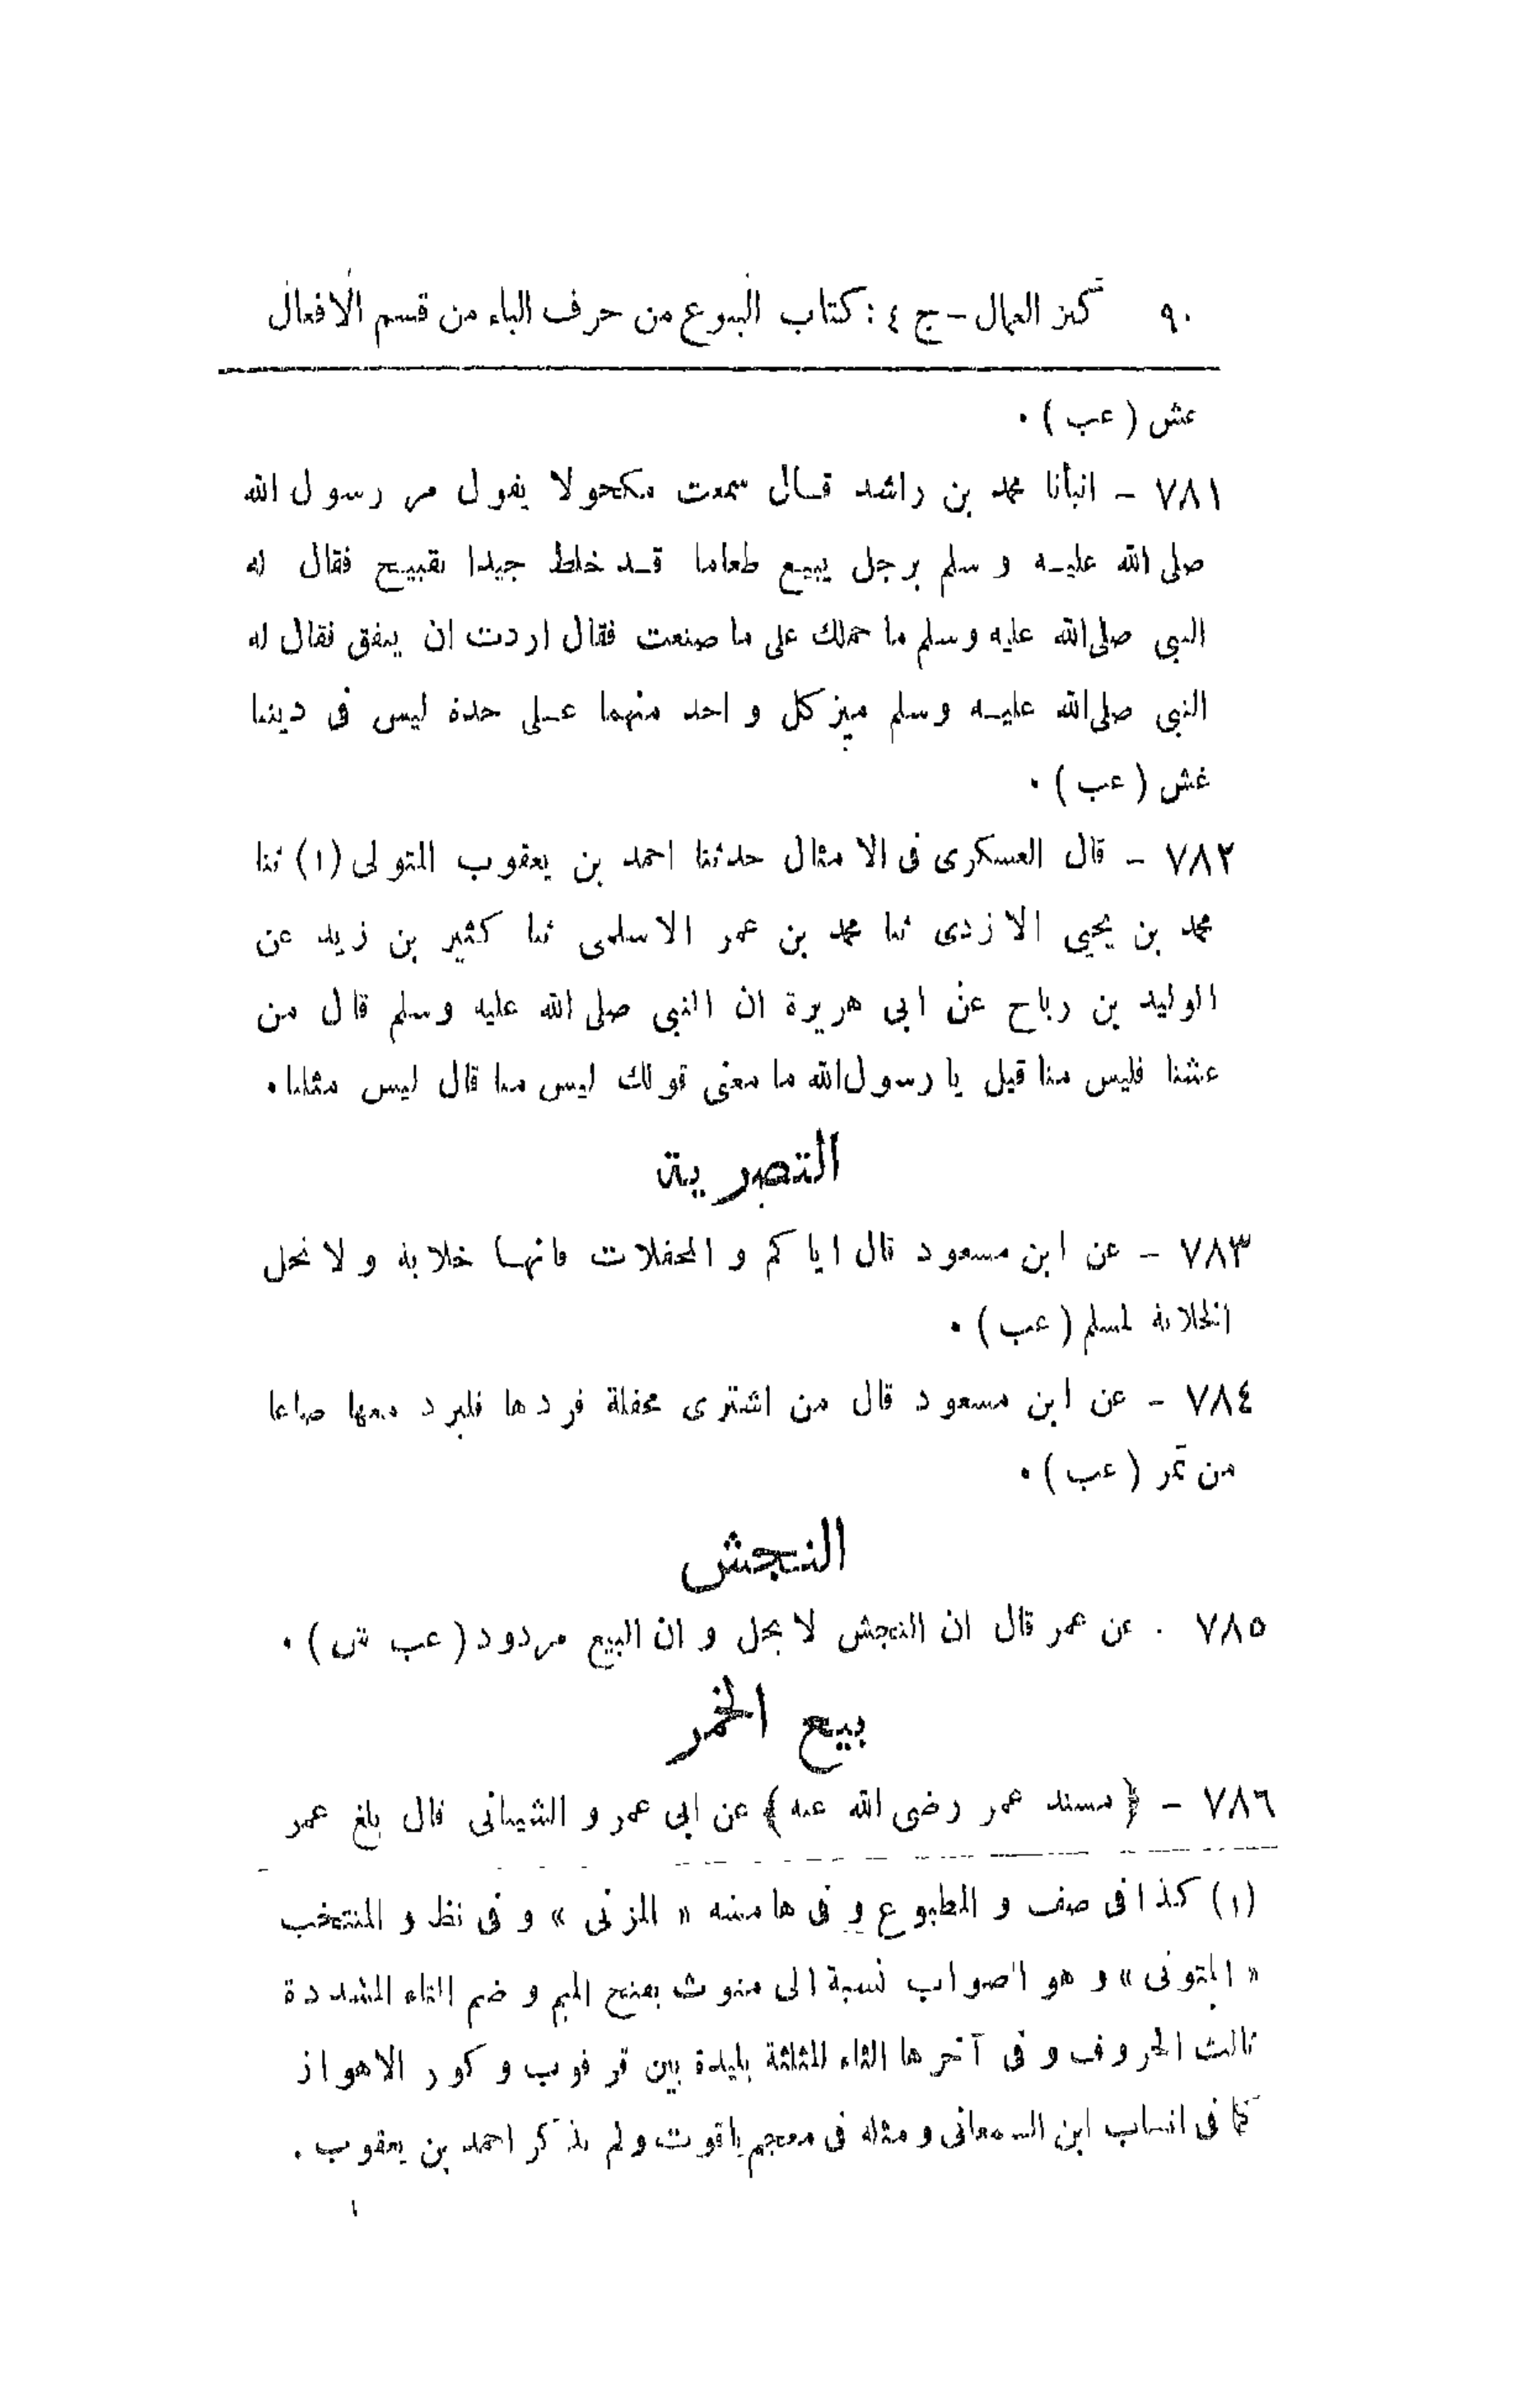 ٩٠ كنز العمال – ج ٤ : كتاب البيوع من حرف الباء من قسم الافعال
غش ( عب ) .
٧٨١ – انبأنا محمد بن راشد قال سمعت مكحولا يقول مر رسول الله
صلى الله عليه و سلم برجل يبيع طعاما قد خلط جيدا بقبيح فقال له
النبى صلى الله عليه وسلم ما حملك على ما صنعت فقال اردت ان ينفق فقال له
النبى صلى الله عليه وسلم ميز كل و احد منهما على حدة ليس فى ديننا
غش ( عب ) .
٧٨٢ – قال العسكرى فى الامثال حدثنا احمد بن يعقوب المتولى (١) ثنا
محمد بن يحيى الازدى ثنا محمد بن عمر الاسلمى ثنا كثير بن زيد عن
الوليد بن رباح عن ابى هريرة ان النبى صلى الله عليه وسلم قال من
غشنا فليس منا قيل يا رسول الله ما معنى قولك ليس منا قال ليس مثلنا .
التصرية
٧٨٣ – عن ابن مسعود قال اياكم و المحفلات فانها خلابة و لا تحل
الخلابة لمسلم ( عب ) .
٧٨٤ – عن ابن مسعود قال من اشترى محفلة فردها فليرد معها صاعا
من تمر ( عب ) .
النجش
٧٨٥ . عن عمر قال ان النجش لا يحل و ان البيع مردود ( عب ش ) .
بيع الخمر
٧٨٦ – ﴿ مسند عمر رضى الله عنه ﴾ عن ابى عمرو الشيبانى قال بلغ عمر
(١) كذا فى صف و المطبوع و فى هامشه « المزنى » و فى نظ و المنتخب
« المتوثى » و هو الصواب نسبة الى متوث بفتح الميم و ضم التاء المشددة
ثالث الحروف و فى آخرها الثاء المثلثة بليدة بين قرقوب و كور الاهواز
كما فى انساب ابن السمعانى و مثله فى معجم ياقوت ولم يذكر احمد بن يعقوب .